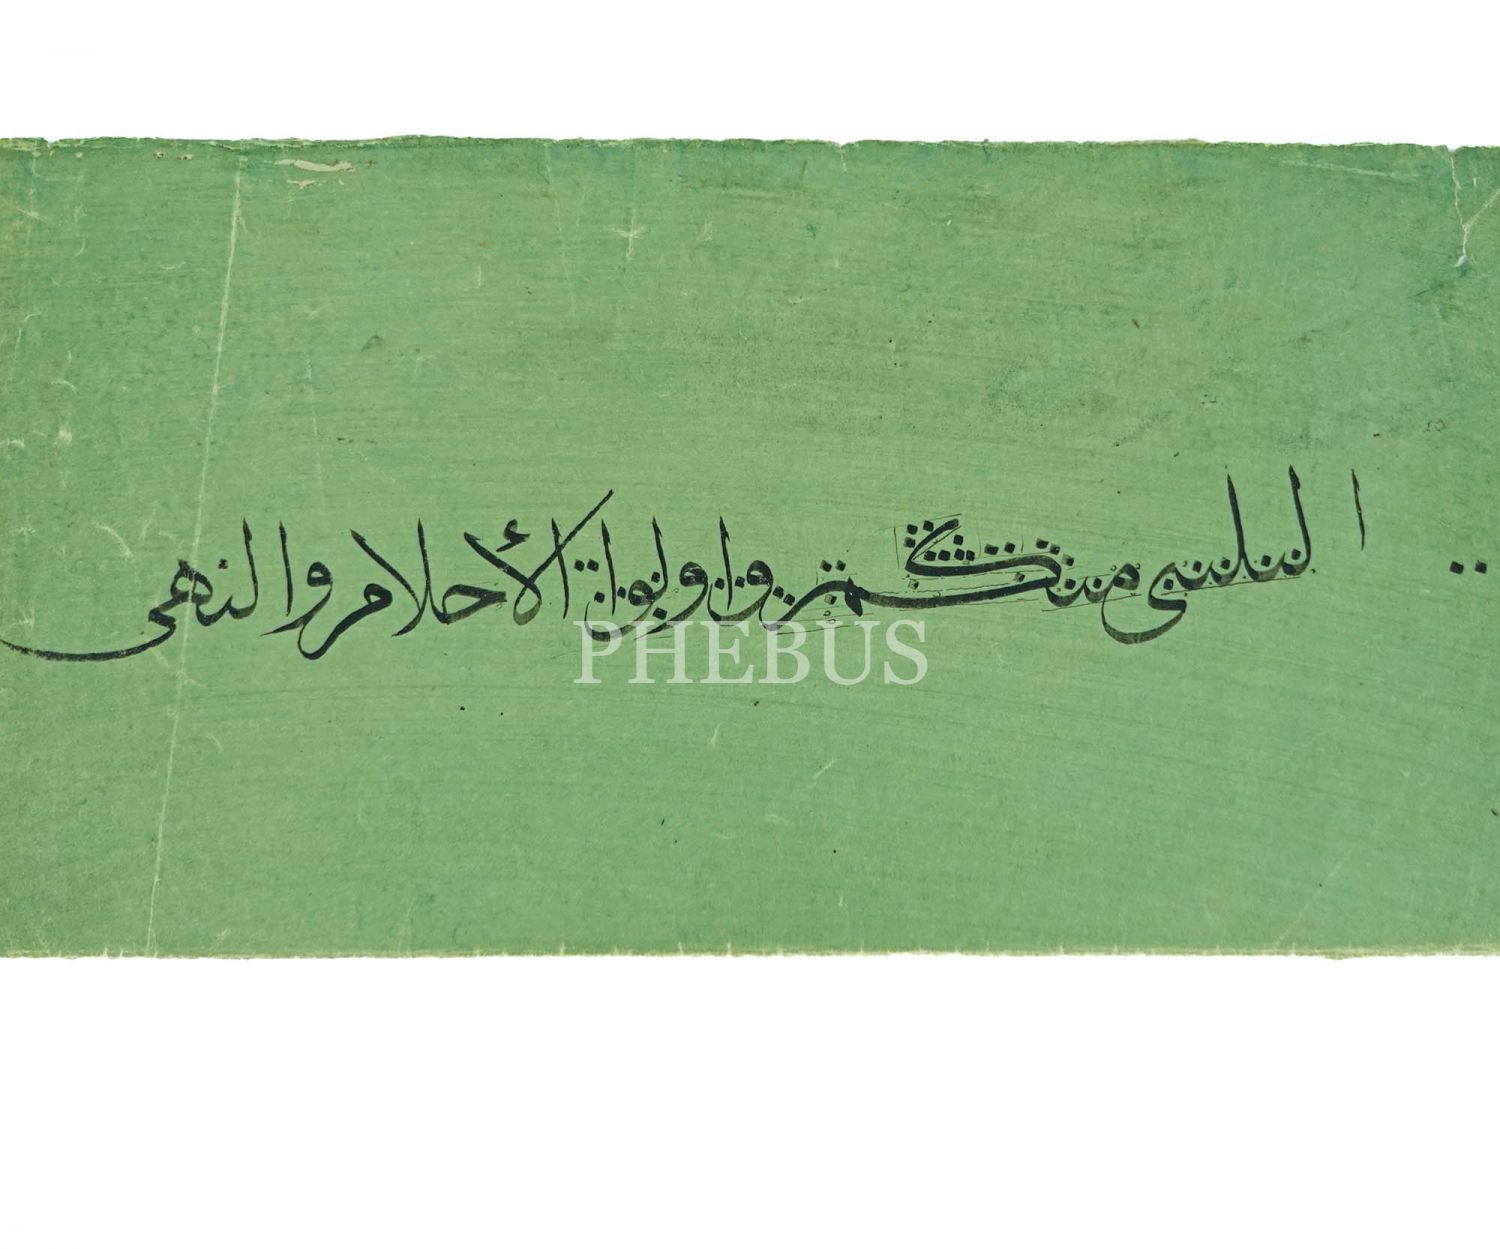 ليلنى منكم اولوا الأحلام والنهى
PHEBUS